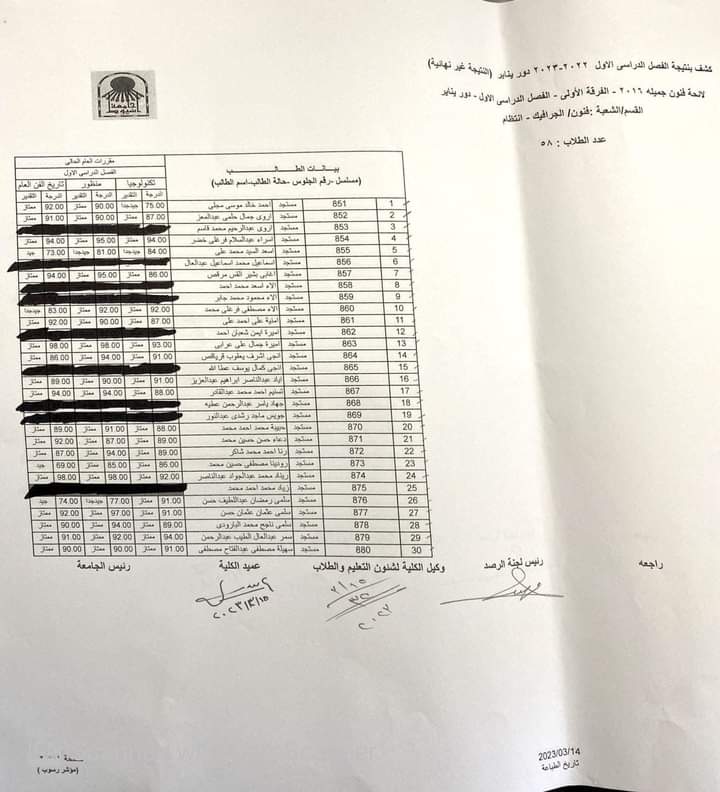 كشف بنتيجة الفصل الدراسى الاول ٢٠٢٢-٢٠٢٣ دور يناير (النتيجة غير نهائية)
لائحة فنون جميله ٢٠١٦ - الفرقة الأولى - الفصل الدراسى الاول - دور يناير
القسم/الشعبة :فنون/ الجرافيك - انتظام
عدد الطلاب : ٥٨
جامعة أسيوط
بيانات الطالب
(مسلسل -رقم الجلوس -حالة الطالب-اسم الطالب)
مقررات العام الحالى
الفصل الدراسى الاول
تكنولوجيا منظور تاريخ الفن العام
الدرجة التقدير الدرجة التقدير الدرجة التقدير
1 851 مستجد احمد خالد موسى مجلى 75.00 جيدجدا 90.00 ممتاز 92.00 ممتاز
2 852 مستجد اروى جمال حلمى عبدالمعز 87.00 ممتاز 90.00 ممتاز 91.00 ممتاز
3 853 مستجد اروى عبدالرحيم محمد قاسم
4 854 مستجد اسراء عبدالسلام فرغلى خضر 94.00 ممتاز 95.00 ممتاز 94.00 ممتاز
5 855 مستجد اسعد السيد محمد على 84.00 جيدجدا 81.00 جيدجدا 73.00 جيد
6 856 مستجد اسماعيل محمد اسماعيل عبدالعال
7 857 مستجد اغابى بشير القس مرقص 86.00 ممتاز 95.00 ممتاز 94.00 ممتاز
8 858 مستجد الاء اسعد محمد احمد
9 859 مستجد الاء محمود محمد جابر
10 860 مستجد الاء مصطفى فرغلى محمد 92.00 ممتاز 92.00 ممتاز 83.00 جيدجدا
11 861 مستجد امنية على احمد على 87.00 ممتاز 90.00 ممتاز 92.00 ممتاز
12 862 مستجد اميرة ايمن شعبان احمد
13 863 مستجد اميرة جمال على عرابى 93.00 ممتاز 98.00 ممتاز 98.00 ممتاز
14 864 مستجد انجى اشرف يعقوب قرياقص 91.00 ممتاز 94.00 ممتاز 86.00 ممتاز
15 865 مستجد انجى كمال يوسف عطا الله
16 866 مستجد اياد عبدالناصر ابراهيم عبدالعزيز 91.00 ممتاز 90.00 ممتاز 89.00 ممتاز
17 867 مستجد تسنيم احمد محمد عبدالقادر 88.00 ممتاز 94.00 ممتاز 94.00 ممتاز
18 868 مستجد جهاد ياسر عبدالرحمن عطيه
19 869 مستجد جويس ماجد رشدى عبدالنور
20 870 مستجد حبيبة محمد احمد محمد 88.00 ممتاز 91.00 ممتاز 89.00 ممتاز
21 871 مستجد دعاء حسن حسين محمد 89.00 ممتاز 87.00 ممتاز 92.00 ممتاز
22 872 مستجد رنا احمد محمد شاكر 89.00 ممتاز 94.00 ممتاز 87.00 ممتاز
23 873 مستجد رودينا مصطفى حسين محمد 86.00 ممتاز 85.00 ممتاز 69.00 جيد
24 874 مستجد ريناد محمد عبدالجواد عبدالناصر 92.00 ممتاز 98.00 ممتاز 98.00 ممتاز
25 875 مستجد زياد محمد احمد محمد
26 876 مستجد سلمى رمضان عبداللطيف حسن 91.00 ممتاز 77.00 جيدجدا 74.00 جيد
27 877 مستجد سلمى عثمان عثمان حسن 91.00 ممتاز 97.00 ممتاز 92.00 ممتاز
28 878 مستجد سلمى ناجح محمد البارودى 89.00 ممتاز 94.00 ممتاز 90.00 ممتاز
29 879 مستجد سمر عبدالعال الطيب عبدالرحمن 94.00 ممتاز 92.00 ممتاز 91.00 ممتاز
30 880 مستجد سهيلة مصطفى عبدالفتاح مصطفى 91.00 ممتاز 90.00 ممتاز 90.00 ممتاز
راجعه رئيس لجنة الرصد وكيل الكلية لشئون التعليم والطلاب عميد الكلية رئيس الجامعة
٢٠٢٣/٣/١٥
2023/03/14
تاريخ الطباعة
(مؤشر رسوب )